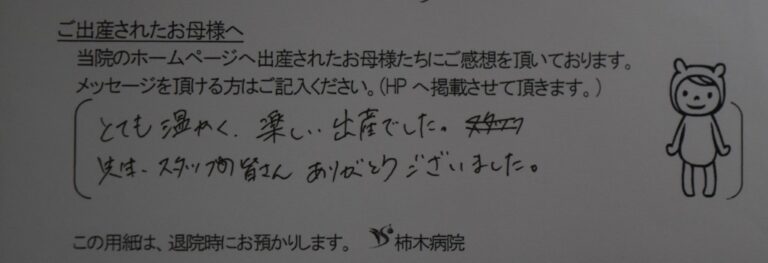 ご出産されたお母様へ
当院のホームページへ出産されたお母様たちにご感想を頂いております。
メッセージを頂ける方はご記入ください。(HPへ掲載させて頂きます。)
とても温かく、楽しい出産でした。
先生、スタッフの皆さんありがとうございました。
この用紙は、退院時にお預かりします。 柿木病院